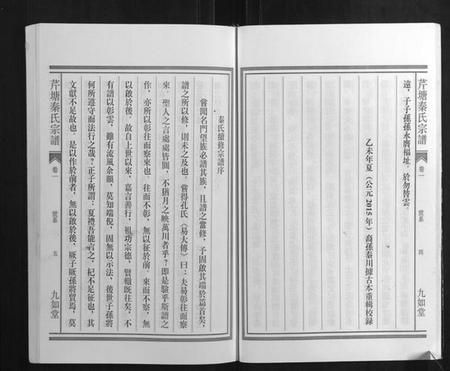 芹塘秦氏宗譜
卷一
四
九如堂
遠，子子孫孫永膺福址，於勿替雲。
乙未年夏（公元2015年）裔孫秦川據古本重輯校録
秦氏續修文譜序
嘗聞名門望族必譜其族，且譜之當修，予固啟其端於篇首矣，
譜之所以修，則未之及也。嘗得孔氏《易大傳》曰：夫易彰往而察
來。聖人之言處處皆圓，不猶月之映萬川者乎？即是驗乎斯譜之
作，亦所以彰往而察來也。往而不彰，無以征於前。來而不察，無
以啟於後。故自上世以來，嘉言善行，祖功宗德，賢輟既往矣，不
有譜以彰雲，雖有流風余韻，莫知端倪，固無以示法，後世子孫將
何所遵守而法行之哉？正子所謂：夏禮吾能言之，杞不足征也，其
文獻不足故也。是以作於前者，無以啟於後，厥子厥孫將貿焉，莫
芹塘秦氏宗譜
卷一
五
九如堂